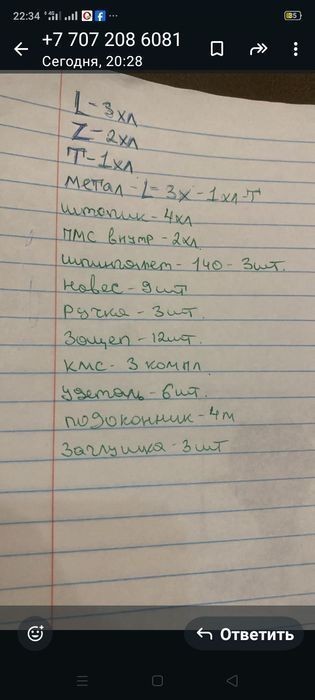 22:34
5
+7 707 208 6081
Сегодня, 20:28
L - 3хл
Z - 2хл
Т - 1хл
метал - L = 3х - 1хл-Т
штапик - 4хл
ПМС внутр - 2хл
шпингалет - 140 - 3шт.
Навес - 9шт
Ручка - 3шт.
Зацеп - 12шт.
КМС - 3 компл.
удеталь - 6шт.
подоконник - 4м
Заглушка - 3шт
Ответить